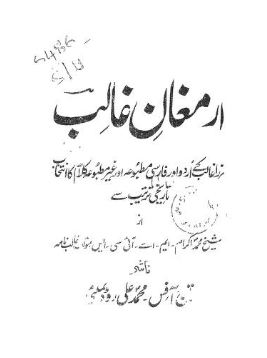 ارمغانِ غالب
مرزا غالب کے اردو اور فارسی مطبوعہ اور غیر مطبوعہ کلام کا انتخاب
تاریخی ترتیب سے
از
شیخ محمد اکرام۔ ایم۔ اے۔ آئی۔ سی۔ ایس مؤلف غالب نامہ
ناشر
آفس محمد علی روڈ بمبئی